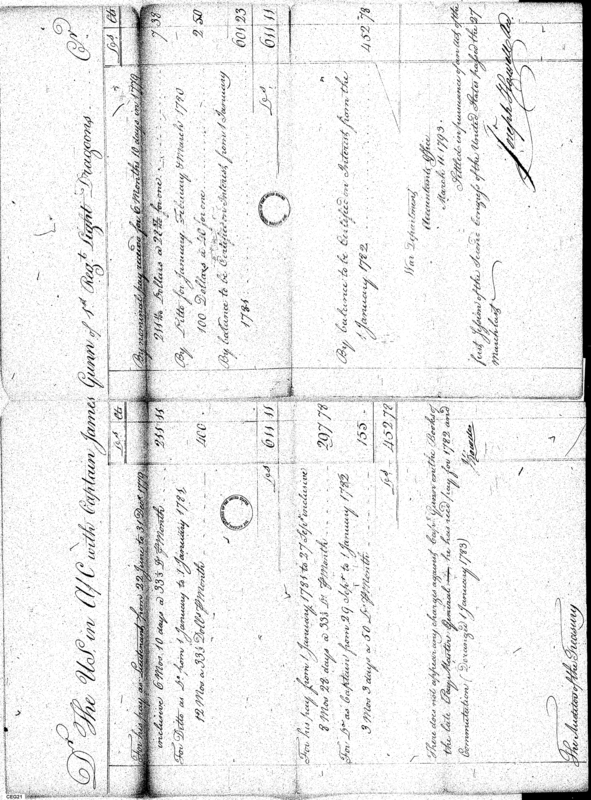 Dr The U.S. in A/C with Captain James Gunn of 1st Regt. Light Dragoons Cr.
Dols Cts
For his pay as Lieutenant from 22 June to 31 Decr 1779
inclusive 6 Mos. 10 days a 33⅓ Ds. ⅌ Month 211.11
For Ditto as Do. from 1 January to 1 January 1781
12 Mos a 33⅓ Dolls ⅌ Month 400.
Dols 611.11
For his pay from 1 January 1781 to 27 Septr inclusive
8 Mos 28 days a 33⅓ Ds. ⅌ Month 297.78
For Do. as Captain from 29 Septr to 1 January 1782
3 Mos 3 days a 50 Ds. ⅌ Month 155.
Dols 452.78
There does not appear any charges against Capt. Gunn on the Books of
the late Pay Master General he has recd pay for 1782 and
Commutation (Deranged 1 January 1783)
The Auditor of the Treasury
Dols Cts
By nominal pay received for 6 Months 10 days in 1779
Dollars a for one 7.38
By Ditto for January February & March 1780
100 Dollars a 40 for one 2.50
By balance to be Certified on Interest from 1 January
1781 601.23
Dols 611.11
By balance to be Certified on Interest from the
1 January 1782 452.78
War Department
Accountants Office
March 11 1793.
Settled in pursuance of an Act of the
first Session of the Second Congress of the United States passed the 27
March last
Joseph Howell
CEG21